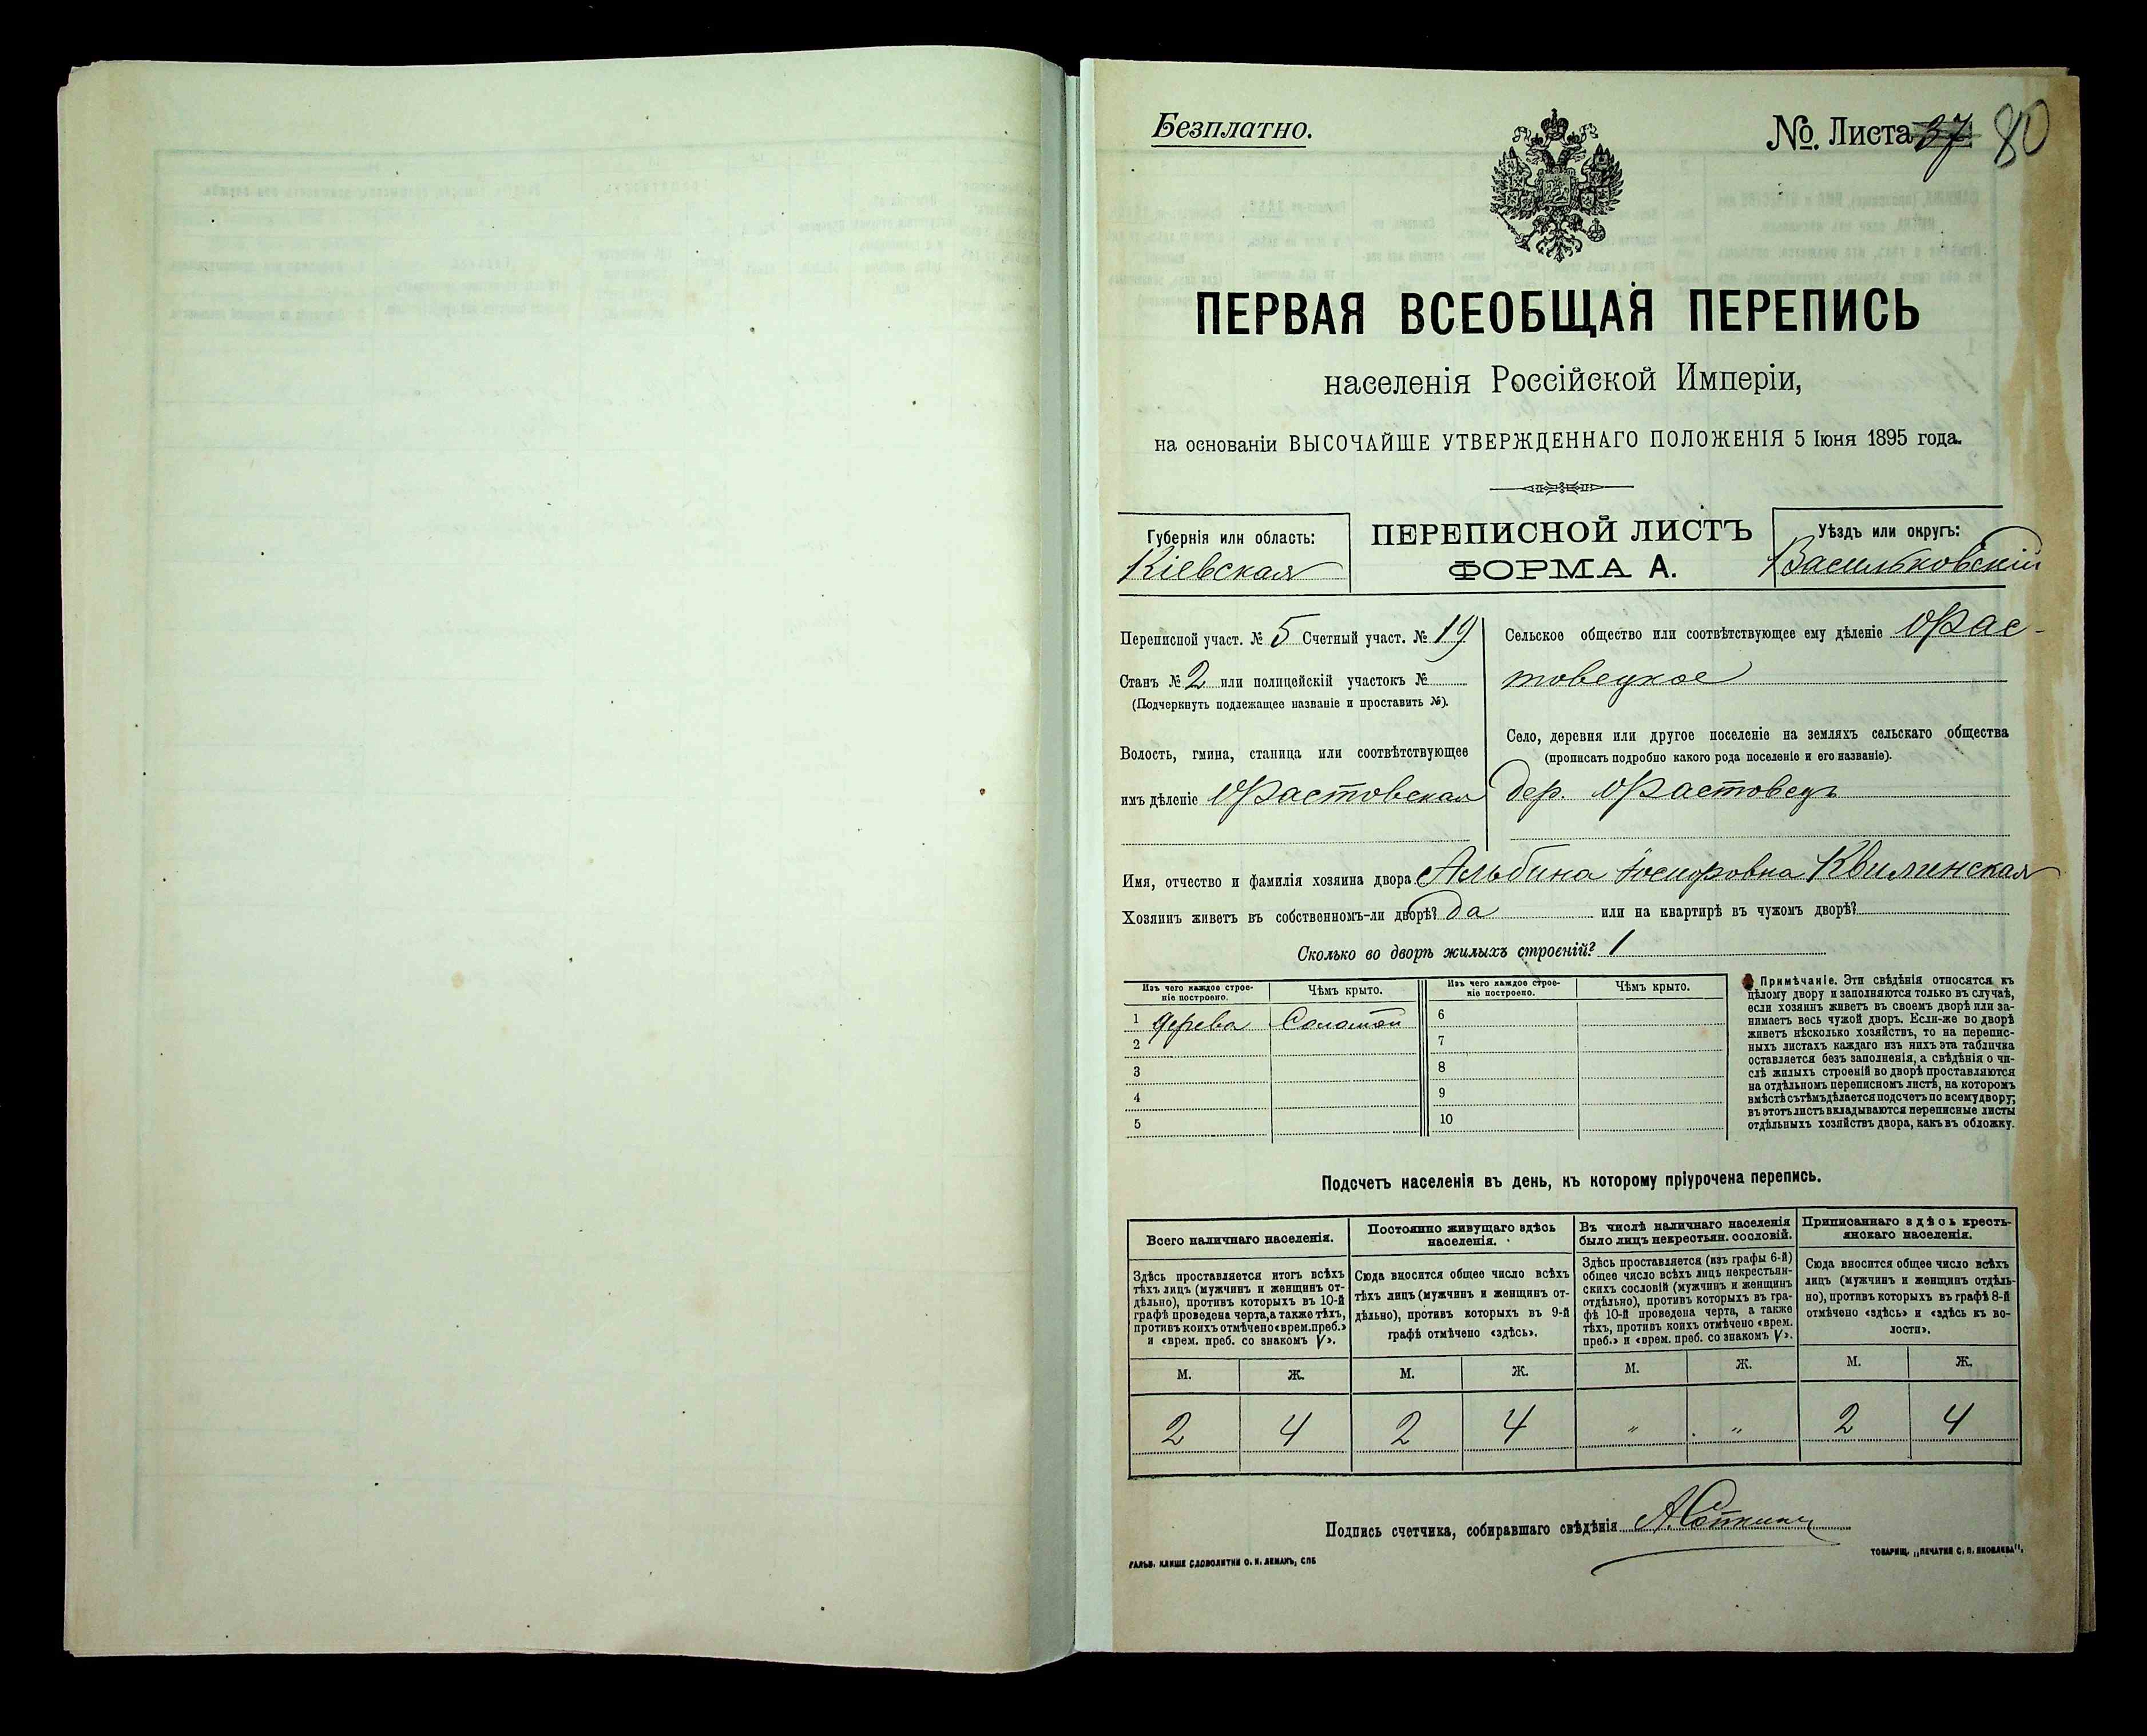 Безплатно.
№. Листа 37 80
ПЕРВАЯ ВСЕОБЩАЯ ПЕРЕПИСЬ
населенія Россійской Имперіи,
на основаніи ВЫСОЧАЙШЕ УТВЕРЖДЕННАГО ПОЛОЖЕНІЯ 5 Іюня 1895 года.
Губернія или область:
Кіевская
ПЕРЕПИСНОЙ ЛИСТЪ
ФОРМА А.
Уѣздъ или округъ:
Васильковскій
Переписной участ. № 5 Счетный участ. № 19
Станъ № 2 или полицейскій участокъ №
(Подчеркнуть подлежащее названіе и проставить №).
Волость, гмина, станица или соотвѣтствующее
имъ дѣленіе Фастовская
Сельское общество или соотвѣтствующее ему дѣленіе Фас-
товецкое
Село, деревня или другое поселеніе на земляхъ сельскаго общества
(прописать подробно какого рода поселеніе и его названіе).
дер. Фастовецъ
Имя, отчество и фамилія хозяина двора Альбина Іосифовна Квилинская
Хозяинъ живетъ въ собственномъ-ли дворѣ? да или на квартирѣ въ чужомъ дворѣ?
Сколько во дворѣ жилыхъ строеній? 1
Изъ чего каждое строе-
ніе построено.
Чѣмъ крыто.
1 дерева Соломой
2
3
4
5
Изъ чего каждое строе-
ніе построено.
Чѣмъ крыто.
6
7
8
9
10
Примѣчаніе. Эти свѣдѣнія относятся къ
цѣлому двору и заполняются только въ случаѣ,
если хозяинъ живетъ въ своемъ дворѣ или за-
нимаетъ весь чужой дворъ. Если-же во дворѣ
живетъ нѣсколько хозяйствъ, то на перепис-
ныхъ листахъ каждаго изъ нихъ эта табличка
оставляется безъ заполненія, а свѣдѣнія о чи-
слѣ жилыхъ строеній во дворѣ проставляются
на отдѣльномъ переписномъ листѣ, на которомъ
вмѣстѣ съ тѣмъ дѣлается подсчетъ по всему двору;
въ этотъ листъ вкладываются переписные листы
отдѣльныхъ хозяйствъ двора, какъ въ обложку.
Подсчетъ населенія въ день, къ которому пріурочена перепись.
Всего наличнаго населенія.
Здѣсь проставляется итогъ всѣхъ
тѣхъ лицъ (мужчинъ и женщинъ от-
дѣльно), противъ которыхъ въ 10-й
графѣ проведена черта, а также тѣхъ,
противъ коихъ отмѣчено «врем. преб.»
и «врем. преб. со знакомъ V».
Постоянно живущаго здѣсь
населенія.
Сюда вносится общее число всѣхъ
тѣхъ лицъ (мужчинъ и женщинъ от-
дѣльно), противъ которыхъ въ 9-й
графѣ отмѣчено «здѣсь».
Въ числѣ наличнаго населенія
было лицъ некрестьян. сословій.
Здѣсь проставляется (изъ графы 6-й)
общее число всѣхъ лицъ некрестьян-
скихъ сословій (мужчинъ и женщинъ
отдѣльно), противъ которыхъ въ гра-
фѣ 10-й проведена черта, а также
тѣхъ, противъ коихъ отмѣчено «врем.
преб.» и «врем. преб. со знакомъ V».
Приписаннаго здѣсь кресть-
янскаго населенія.
Сюда вносится общее число всѣхъ
лицъ (мужчинъ и женщинъ отдѣль-
но), противъ которыхъ въ графѣ 8-й
отмѣчено «здѣсь» и «здѣсь къ во-
лости».
М. Ж. М. Ж. М. Ж. М. Ж.
2 4 2 4 " " 2 4
Подпись счетчика, собиравшаго свѣдѣнія
ГАЛЬВ. КЛИШЕ СЛОВОЛИТНИ О. И. ЛЕМАНЪ, СПБ
ТОВАРИЩ. „ПЕЧАТНЯ С. П. ЯКОВЛЕВА".